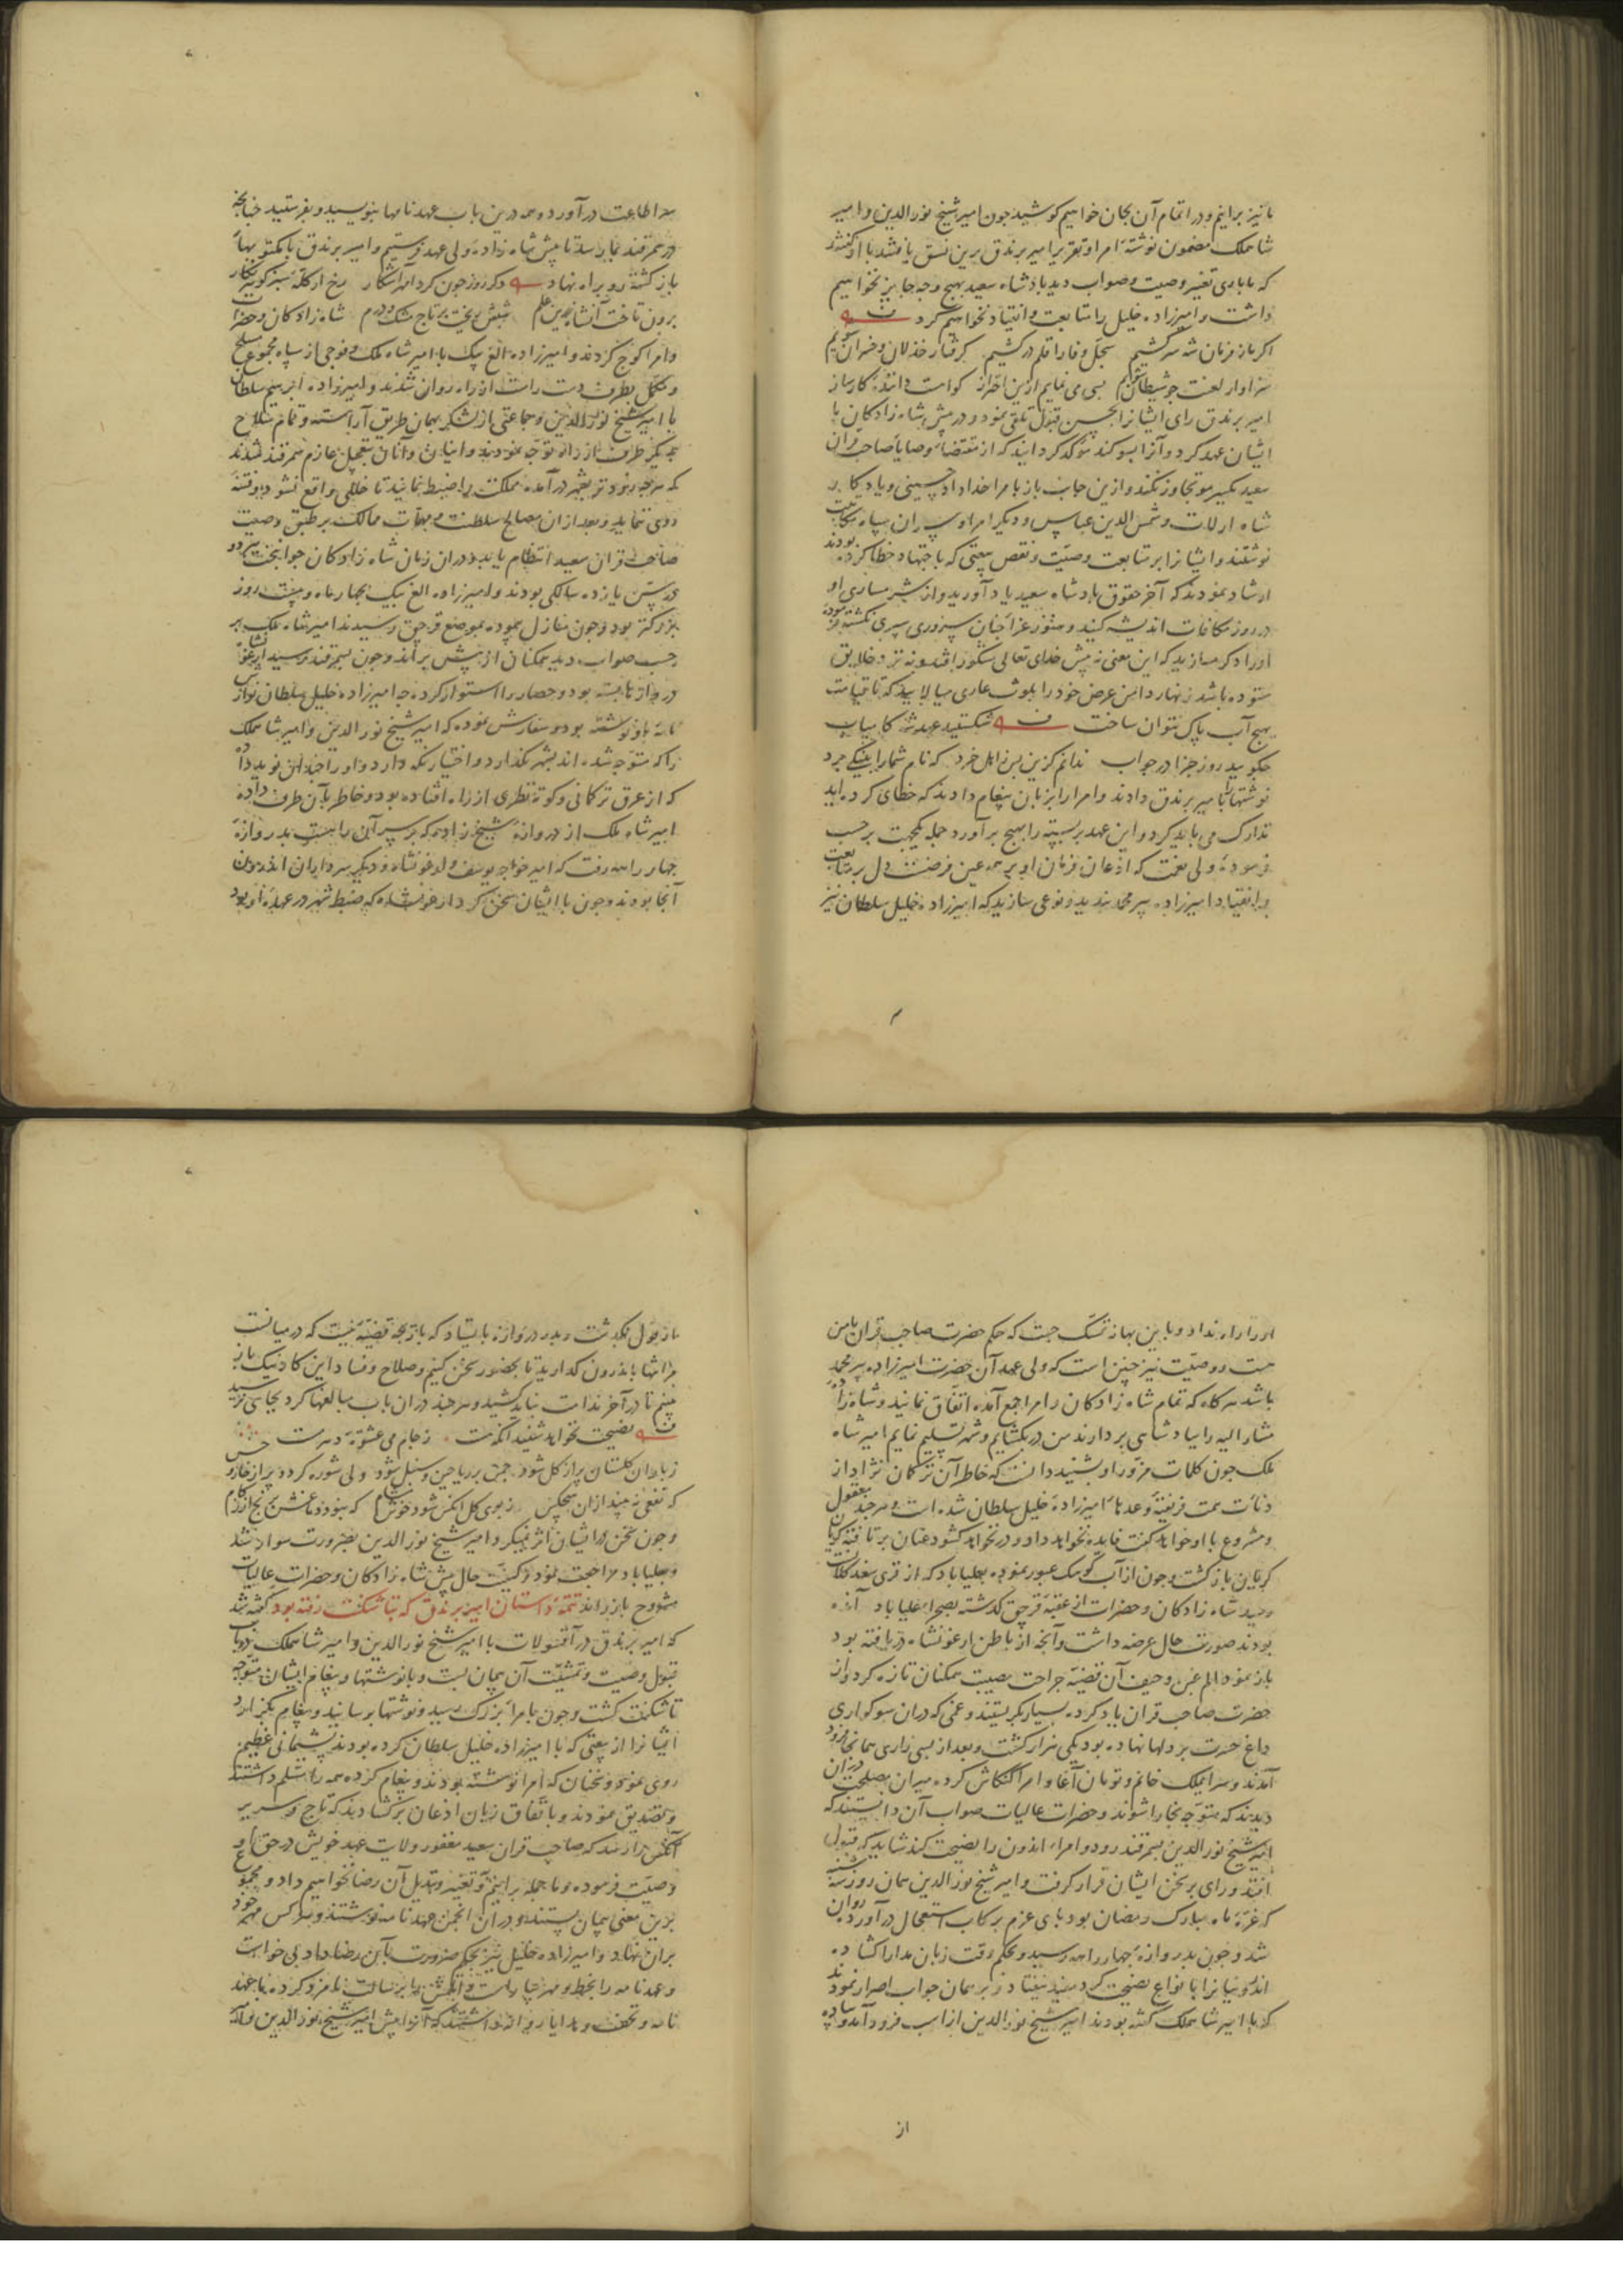 ما نیز برانیم و در اتمام آن بجان خواهیم کوشید چون امیر شیخ نور الدین و امیر
شاهملک مضمون نوشته امرا و تقریر امیر برندق برین نسق یافتند با او گفتند
که ما باری تغییر وصیت و صواب دید پادشاه سعید بهیچ وجه جایز نخواهیم
داشت و امیرزاده خلیل را متابعت و انقیاد نخواهیم کرد
اکر باز فرمان شه سرکشیم سجل وفا را قلم درکشیم کرفتار خذلان و خسران شویم
سزاوار لعنت چو شیطان شویم بسی می نمایم ازین احتراز
امیر برندق رای ایشانرا بحسن قبول تلقی نمود و در پیش شاه زادکان با
ایشان عهد کرد و آنرا بسوکند موکد کردانید که از مقتضاء وصایا صاحب قران
سعید یکسر مو تجاوز نکند و ازین جانب باز بامرا خداداد حسینی و یادکار
شاه ارلات و شمس الدین عباس و دیکر امرا و سران سپاه
نوشتند و ایشانرا بر متابعت وصیت و نقض بیعتی که باجتهاد خطا کرده بودند
ارشاد نمودند که آخر حقوق پادشاه سعید یاد آورید و از شرمساری او
در روز مکافات اندیشه کنید و هنوز عزا چنان سروری سپری نکشته
این معنی نه پیش خدای تعالی مشکور افتد و نه نزد خلایق
ستوده باشد زنهار دامن عرض خود را بلوث عاری میالایید که تا قیامت
بهیچ آب پاک نتوان ساخت شکستید عهد شه کامیاب
چکویید روز جزا در جواب ندانم کزین پس ز اهل خرد که نام شما را بنیکی برد
نوشتها را بامیر برندق دادند و امرا را بزبان پیغام دادند که خطای کرده اید
تدارک می باید کرد و این عهد بر بسته را بهیچ برآورد جمله یکجهت بر حسب
فرموده ولی نعمت که اذعان فرمان او بر همه عین فرضست دل بر متابعت
و انقیاد امیرزاده پیر محمد بندید و نوعی سازید که امیرزاده خلیل سلطان نیز
سر اطاعت درآورد و همه درین باب عهدنامها بنویسید و بفرستید چنانچه
در سمرقند بما رسد تا پیش شاه زاده ولی عهد فرستیم و امیر برندق با مکتوبها
باز کشته رو براه نهاد دکر روز چون کرد
برون تاخت شاه زادکان و حضرات
و امرا کوچ کردند و امیرزاده الغ بیک با امیر شاه ملک و فوجی از سپاه مجموع مسلح
و مکمل بطرف دست راست از راه روان شدند و امیرزاده ابرهیم سلطان
با امیر شیخ نور الدین و جماعتی از لشکر بهمان طریق آراسته و تمام سلاح
بدیکر طرف از راه توجه نمودند و اینان و آنان بتعجیل عازم سمرقند شدند
که هر چه زودتر بشهر درآمده مملکت را ضبط نمایند تا خللی واقع نشود و فتنه
روی ننماید و بعد از آن مصالح سلطنت و مهمات ممالک بر طبق وصیت
صاحب قران سعید انتظام یابد و در آن زمان شاه زادکان جوانبخت هر دو
در سن یازده سالکی بودند و امیرزاده الغ بیک بچهار ماه و بیست روز
بزرکتر بود و چون منازل پیموده بموضع قرجق رسیدند امیر شاه ملک بر
حسب صواب دید همکنان از پیش براند و چون بسمرقند رسید ارغونشاه
دروازها بسته بود و حصار را استوار کرده چه امیرزاده خلیل سلطان نوازش
نامه باو نوشته بود و سفارش نموده که امیر شیخ نور الدین و امیر شاهملک
را که متوجه شده اند بشهر نکذارد و اختیار نکه دارد و او را چندان نوید داده
که از عرق ترکمانی و کوته نظری از راه افتاده بود و خاطر بآن طرف داده
امیر شاه ملک از دروازه شیخ زاده که بر سر آن راهست بدروازه
چهار راهه رفت که امیر خواجه یوسف و ارغونشاه و دیکر سرداران اندرون
آنجا بودند و چون با ایشان سخن کرد ارغونشاه که ضبط شهر در عهده او بود
او را راه نداد و باین بهانه تمسک جست که حکم حضرت صاحب قران با من
هست و وصیت نیز چنین است که ولی عهد آن حضرت امیرزاده پیر محمد
باشد هر کاه که تمام شاه زادکان و امرا جمع آمده اتفاق نمایند و شاه زاده
مشار الیه را بپادشاهی بردارند من در بکشایم و شهر تسلیم نمایم امیر شاه
ملک چون کلمات مزور او بشنید دانست که خاطر آن ترکمان نژاد از
دنائت همت فریفته وعدهاء امیرزاده خلیل سلطان شده است و هر چند معقول
و مشروع با او خواهد کفت فایده نخواهد داد و در نخواهد کشود عنان برتافته کریان
کریان باز کشت و چون از آب کوهک عبور نموده بعلیاباد که از قری سغد کلانست
رسید شاه زادکان و حضرات از عقبه قرجق کذشته بصحرا علیاباد آمده
بودند صورت حال عرضه داشت و آنچه از باطن ارغونشاه دریافته بود
باز نمود الم غبن و حیف آن قضیه جراحت مصیبت همکنان تازه کردوان
حضرت صاحب قران یاد کرده بسیار بکریستند و غمی که در آن سوکواری
داغ حسرت بر دلها نهاده بود یکی هزار کشت و بعد از بسی زاری همانجا فرود
آمدند و سرایملک خانم و تومان آغا و امرا کنکاش کرده
دیدند که متوجه بخارا شوند و حضرات عالیات صواب آن دانستند که
امیر شیخ نور الدین بسمرقند رود و امراء اندرون را نصیحت کند شاید که قبول
افتد و رای بر سخن ایشان قرار کرفت و امیر شیخ نور الدین همان روز
که غره ماه مبارک رمضان بود پای عزم برکاب استعجال درآورده روان
شد و چون بدروازه چهار راهه رسید و بحکم وقت زبان مدارا کشاده
اندرونیانرا بانواع نصیحت کرد مفید نیفتاد و بر همان جواب اصرار نمودند
که با امیر شاهملک کفته بودند امیر شیخ نور الدین از اسب فرود آمد و پیاده
از
از پول بکذشت و بدر دروازه بایستاد که با وجه قضیه نیست که در میانست
مرا تنها باندرون کذارید تا بحضور سخن کنیم و صلاح و فساد این کار نیک باز
بینیم تا در آخر ندامت نباید کشید و هر چند در آن باب مبالغها کرد بجایی نرسید
نصیحت نخواهد شنید آنکه هست ز جام می عشوه مدهوش مست
ز باران کلستان پر از کل شود چمن پر ریاحین و سنبل شود ولی شوره کردد پر از خار و خس
که نفعی نه بیند از آن هیچکس ز بوی کل
و چون سخن در ایشان اثر نمیکرد امیر شیخ نور الدین بضرورت سوار شد
و بعلیاباد مراجعت نمود و کیفیت حال پیش شاه زادکان و حضرات عالیات
مشروح باز راند تتمه داستان امیر برندق که بتاشکنت رفته بود کفته شد
که امیر برندق در آقسولات با امیر شیخ نور الدین و امیر شاهملک در باب
قبول وصیت و تمشیت آن پیمان بست و با نوشتها و پیغام ایشان متوجه
تاشکنت کشت و چون بامراء بزرک رسید و نوشتها برسانید و پیغام بکزارد
ایشانرا از بیعتی که با امیرزاده خلیل سلطان کرده بودند پشیمانی عظیم
روی نمود و سخنان که امرا نوشته بودند و پیغام کرده همه را مسلم داشتند
و تصدیق نمودند و باتفاق زبان اذعان برکشادند که تاج و سریر
آنکس دارند که صاحب قران سعید مغفور ولایت عهد خویش در حق او
وصیت فرموده و ما جمله برانیم و تغییر و تبدیل آن رضا نخواهیم داد و مجموع
برین معنی پیمان بستند و در آن انجمن عهدنامه نوشتند و هر کس مهر خود
بران نهاد و امیرزاده خلیل نیز بحکم ضرورت بآن رضا داد بی خواست
و عهدنامه را بخط و مهر بیاراست و اتلمش را برسالت نامزد کرده با عهد
نامه و تحف و هدایا روانه داشتند که آنرا پیش امیر شیخ نور الدین و امیر